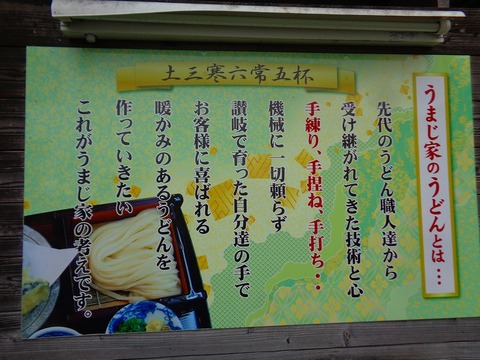 土三寒六常五杯
うまじ家のうどんとは…
先代のうどん職人達から
受け継がれてきた技術と心
手練り、手捏ね、手打ち・・
機械に一切頼らず
讃岐で育った自分達の手で
お客様に喜ばれる
暖かみのあるうどんを
作っていきたい
これがうまじ家の考えです。